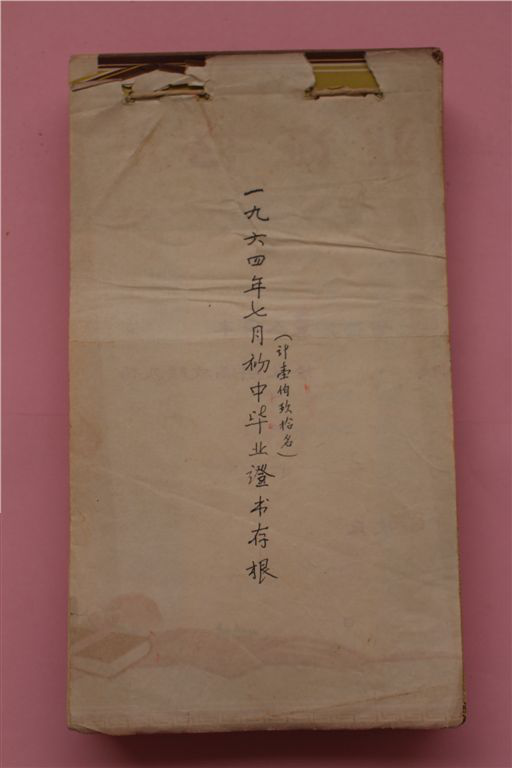 一九六四年七月初中毕业證书存根
（计壹佰玖拾名）